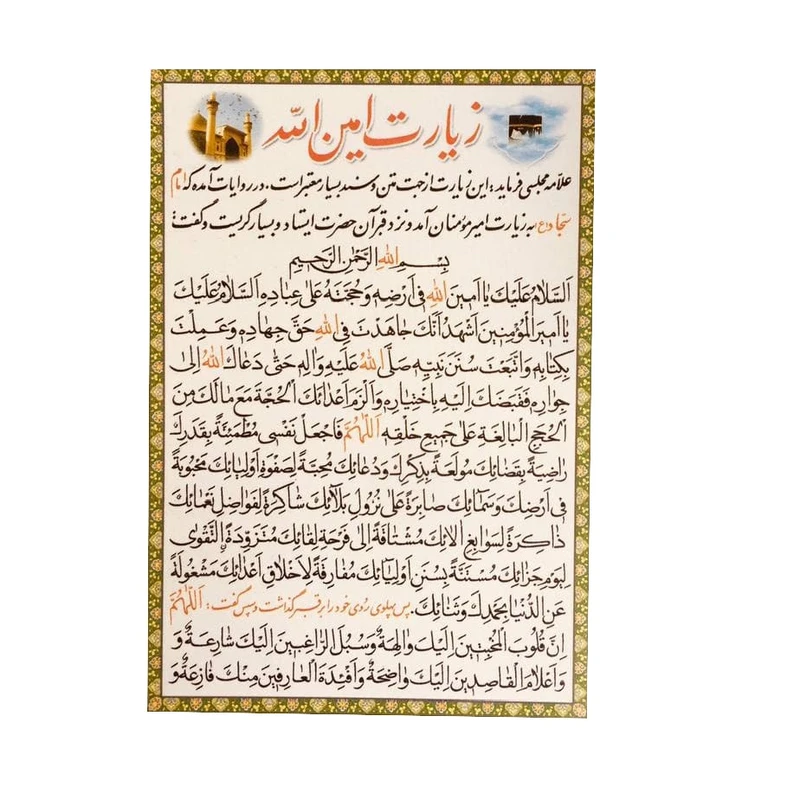 زیارت امین الله
علامه مجلسی فرماید: این زیارت از جهت متن و سند بسیار معتبر است. در روایات آمده که امام
سجاد(ع) به زیارت امیرمؤمنان آمد و نزد قبر آن حضرت ایستاد و بسیار گریست و گفت:
بِسْمِ اللهِ الرَّحْمٰنِ الرَّحیمِ
اَلسَّلامُ عَلَیْكَ یا اَمینَ اللهِ فی اَرْضِهِ وَحُجَّتَهُ عَلیٰ عِبادِهِ اَلسَّلامُ عَلَیْكَ
یا اَمیرَ الْمُؤْمِنینَ اَشْهَدُ اَنَّكَ جاهَدْتَ فِی اللهِ حَقَّ جِهادِهِ وَعَمِلْتَ
بِکِتابِهِ وَاتَّبَعْتَ سُنَنَ نَبِیِّهِ صَلَّی اللهُ عَلَیْهِ وَالِهِ حَتّیٰ دَعاكَ اللهُ اِلیٰ
جِوارِهِ فَقَبَضَكَ اِلَیْهِ بِاخْتِیارِهِ وَاَلْزَمَ اَعْدائَكَ الْحُجَّةَ مَعَ مالَكَ مِنَ
الْحُجَجِ الْبالِغَةِ عَلیٰ جَمیعِ خَلْقِهِ اَللّٰهُمَّ فَاجْعَلْ نَفْسی مُطْمَئِنَّةً بِقَدَرِكَ
راضِیَةً بِقَضائِكَ مُولَعَةً بِذِکْرِكَ وَدُعائِكَ مُحِبَّةً لِصَفْوَةِ اَوْلِیائِكَ مَحْبُوبَةً
فی اَرْضِكَ وَسَمائِكَ صابِرَةً عَلیٰ نُزُولِ بَلائِكَ شاکِرَةً لِفَواضِلِ نَعْمائِكَ
ذاکِرَةً لِسَوابِغِ الائِكَ مُشْتاقَةً اِلیٰ فَرْحَةِ لِقائِكَ مُتَزَوِّدَةً التَّقْویٰ
لِیَوْمِ جَزائِكَ مُسْتَنَّةً بِسُنَنِ اَوْلِیائِكَ مُفارِقَةً لِاَخْلاقِ اَعْدائِكَ مَشْغُولَةً
عَنِ الدُّنْیا بِحَمْدِكَ وَثَنائِكَ. پس پهلوی روی خود را بر قبر گذاشت و سپس گفت: اَللّٰهُمَّ
اِنَّ قُلُوبَ الْمُخْبِتینَ اِلَیْكَ والِهَةٌ وَسُبُلَ الرّاغِبینَ اِلَیْكَ شارِعَةٌ وَ
وَاَعْلامَ الْقاصِدینَ اِلَیْكَ واضِحَةٌ وَاَفْئِدَةَ الْعارِفینَ مِنْكَ فازِعَةٌ وَ